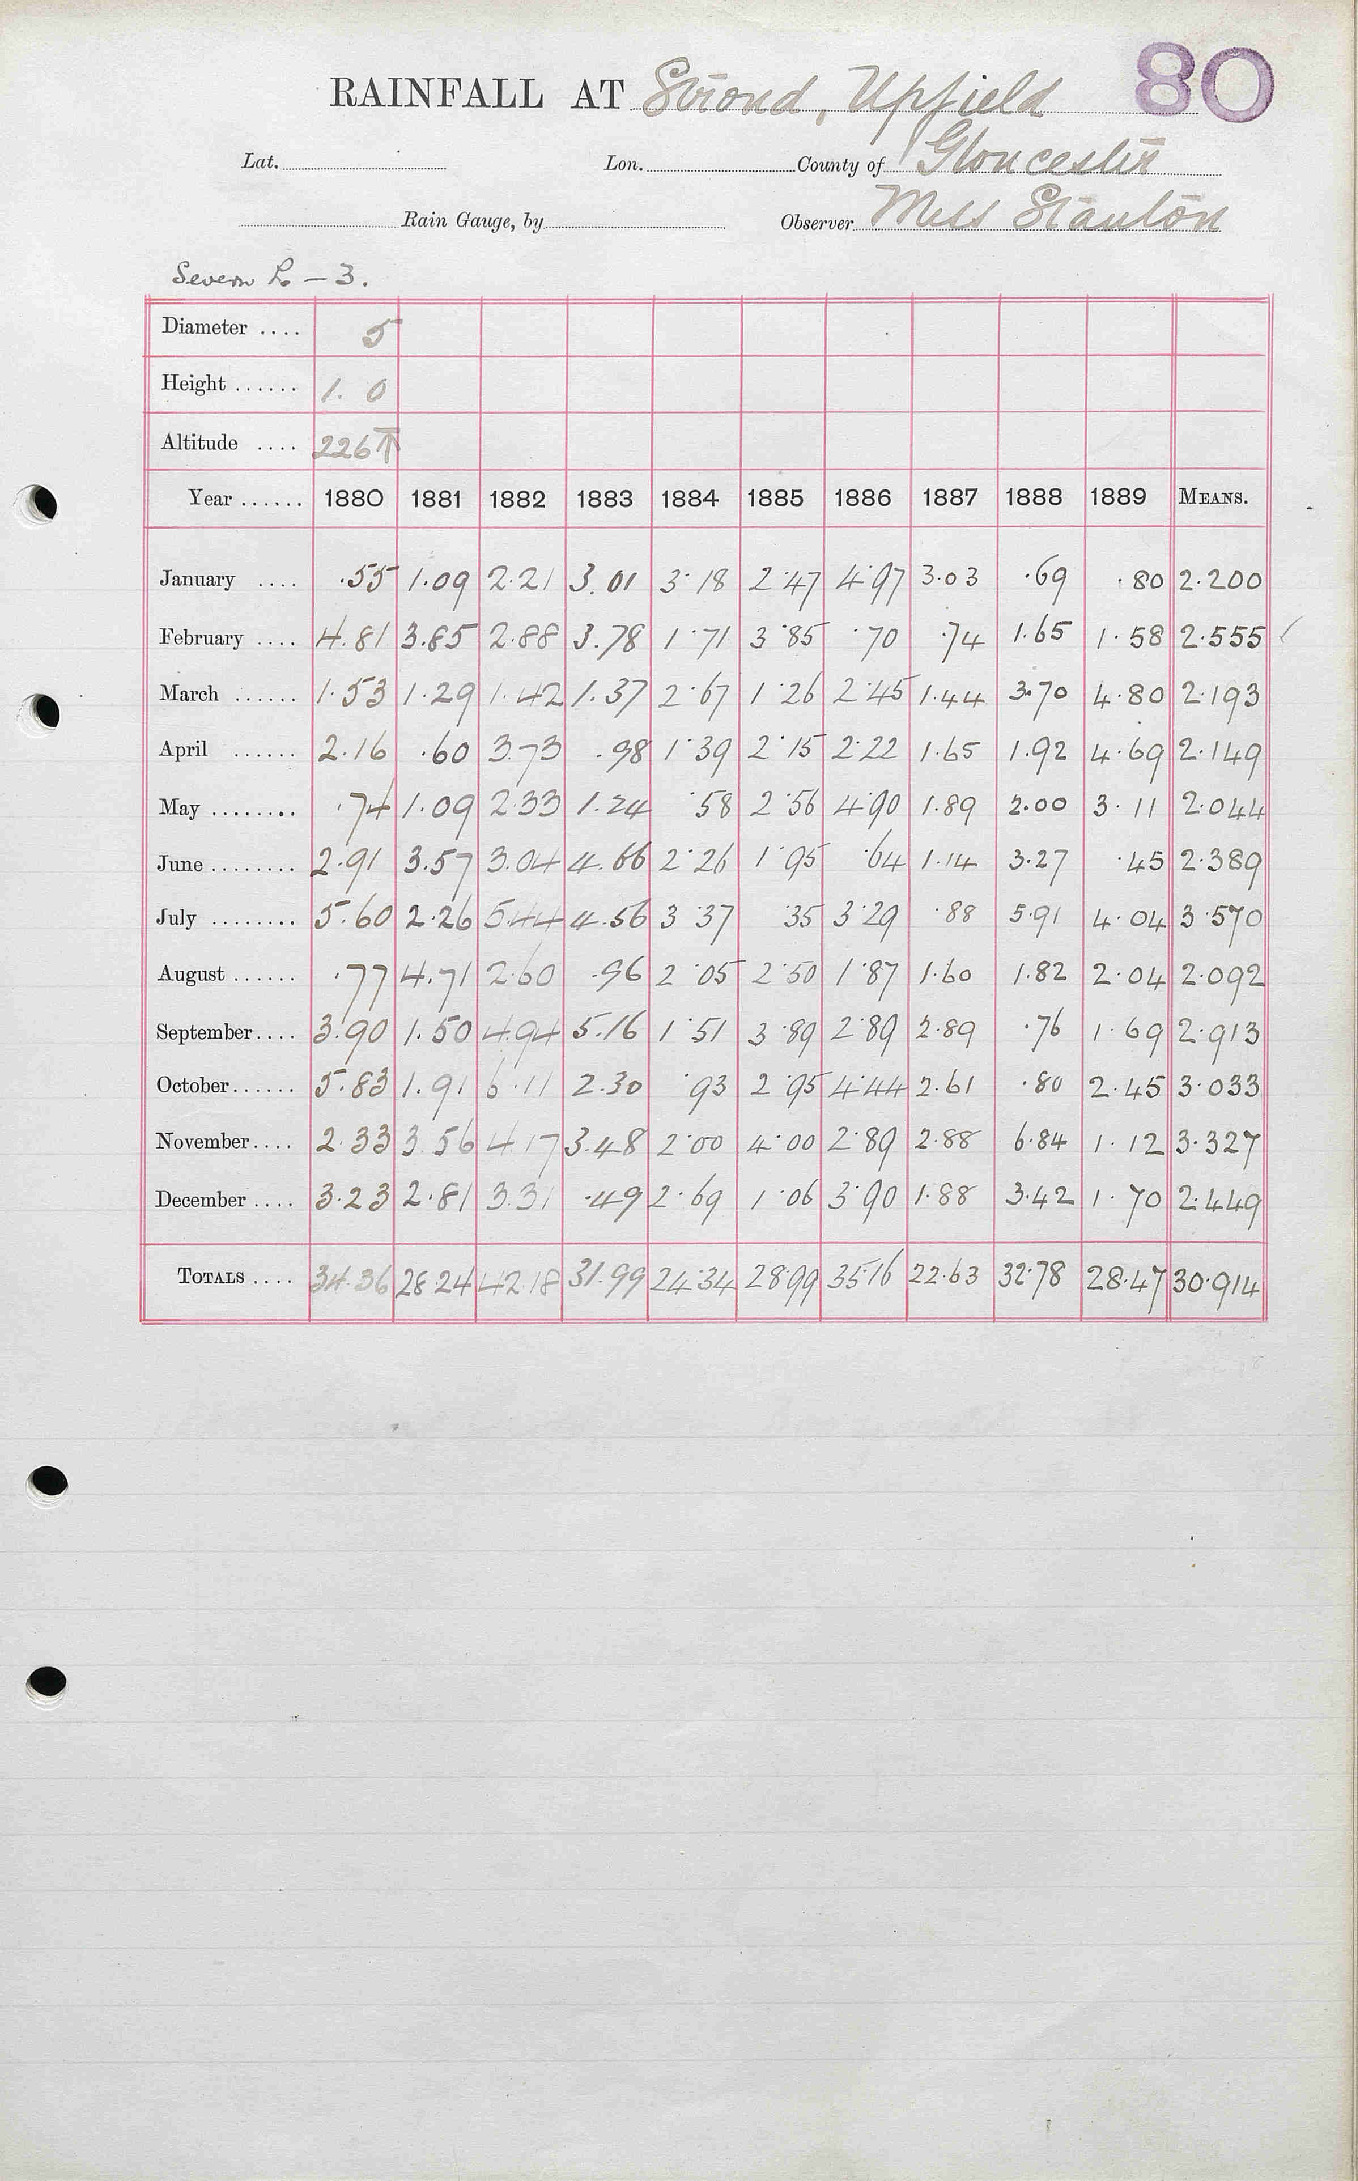 80
RAINFALL AT Stroud, Upfield
Lat. Lon. County of Gloucester
Rain Gauge, by Observer Miss Stanton
Severn L - 3.
Diameter .... 5
Height ...... 1. 0
Altitude .... 226
Year ...... 1880 1881 1882 1883 1884 1885 1886 1887 1888 1889 MEANS.
January .... .55 1.09 2.21 3.01 3.18 2.47 4.97 3.03 .69 .80 2.200
February .... 4.81 3.85 2.88 3.78 1.71 3.85 .70 .74 1.65 1.58 2.555
March ...... 1.53 1.29 1.42 1.37 2.67 1.26 2.45 1.44 3.70 4.80 2.193
April ...... 2.16 .60 3.73 .98 1.39 2.15 2.22 1.65 1.92 4.69 2.149
May ........ .74 1.09 2.33 1.24 .58 2.56 4.90 1.89 2.00 3.11 2.044
June ........ 2.91 3.57 3.04 4.66 2.26 1.95 .64 1.14 3.27 .45 2.389
July ........ 5.60 2.26 5.44 4.56 3.37 .35 3.29 .88 5.91 4.04 3.570
August ...... .77 4.71 2.60 .96 2.05 2.50 1.87 1.60 1.82 2.04 2.092
September.... 3.90 1.50 4.94 5.16 1.51 3.89 2.89 2.89 .76 1.69 2.913
October...... 5.83 1.91 6.11 2.30 .93 2.95 4.44 2.61 .80 2.45 3.033
November.... 2.33 3.56 4.17 3.48 2.00 4.00 2.89 2.88 6.84 1.12 3.327
December .... 3.23 2.81 3.31 .49 2.69 1.06 3.90 1.88 3.42 1.70 2.449
TOTALS .... 34.36 28.24 42.18 31.99 24.34 28.99 35.16 22.63 32.78 28.47 30.914